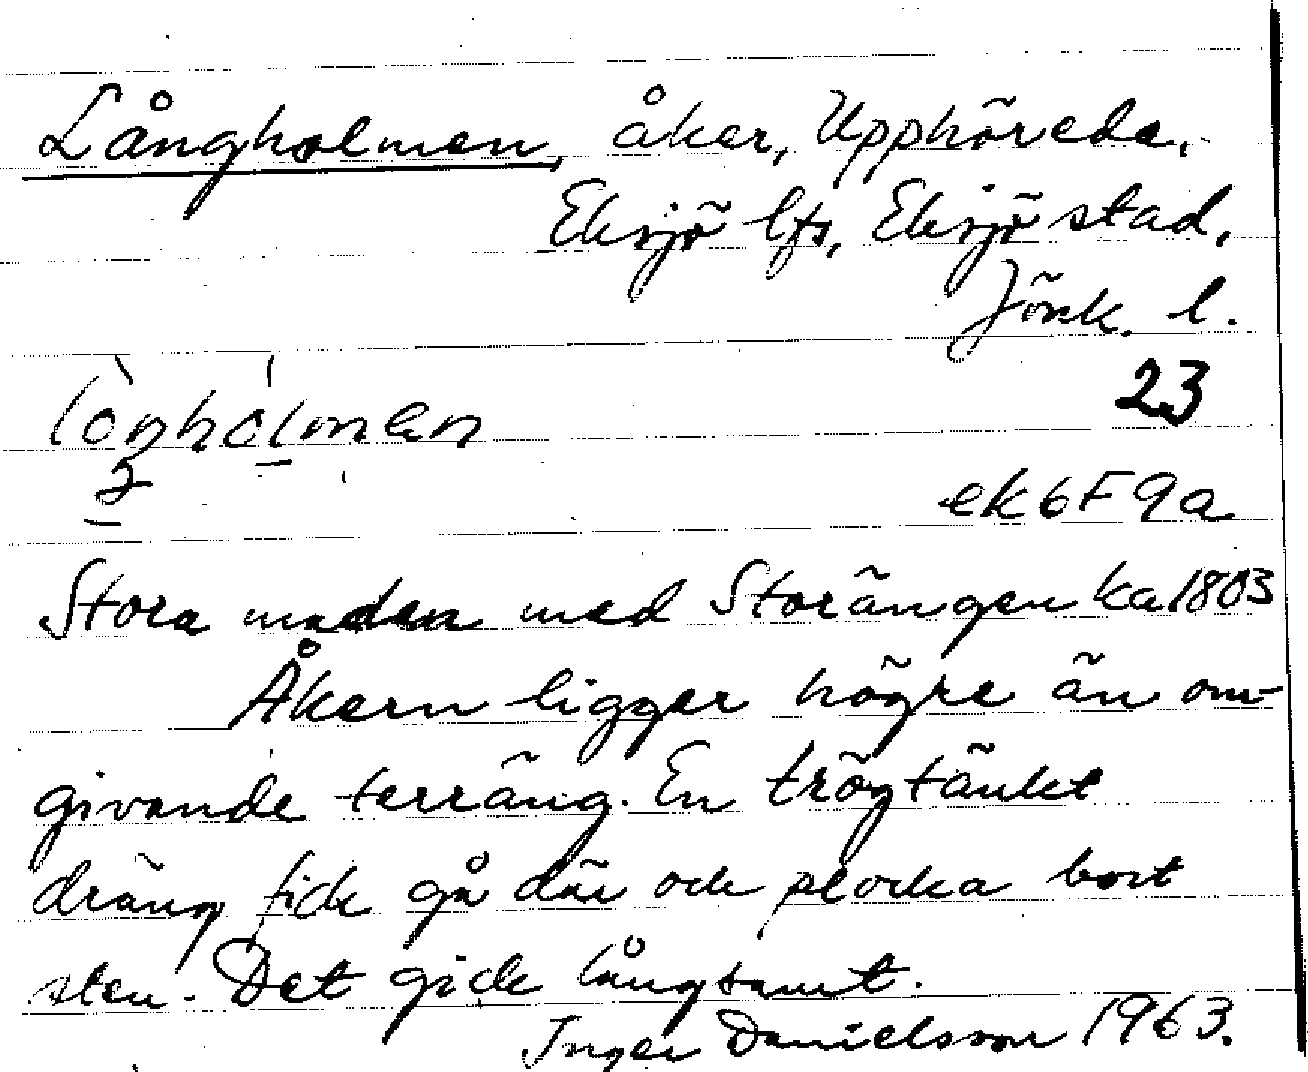 Långholmen, åker, Upphöreda,
Eksjö lfs, Eksjö stad,
Jönk. l.
23
ek6F9a
Stora maden med Storängen ka 1803
Åkern ligger högre än om-
givande terräng. En trögtänkt
dräng fick gå där och plocka bort
sten. Det gick långsamt.
Inger Danielsson 1963.